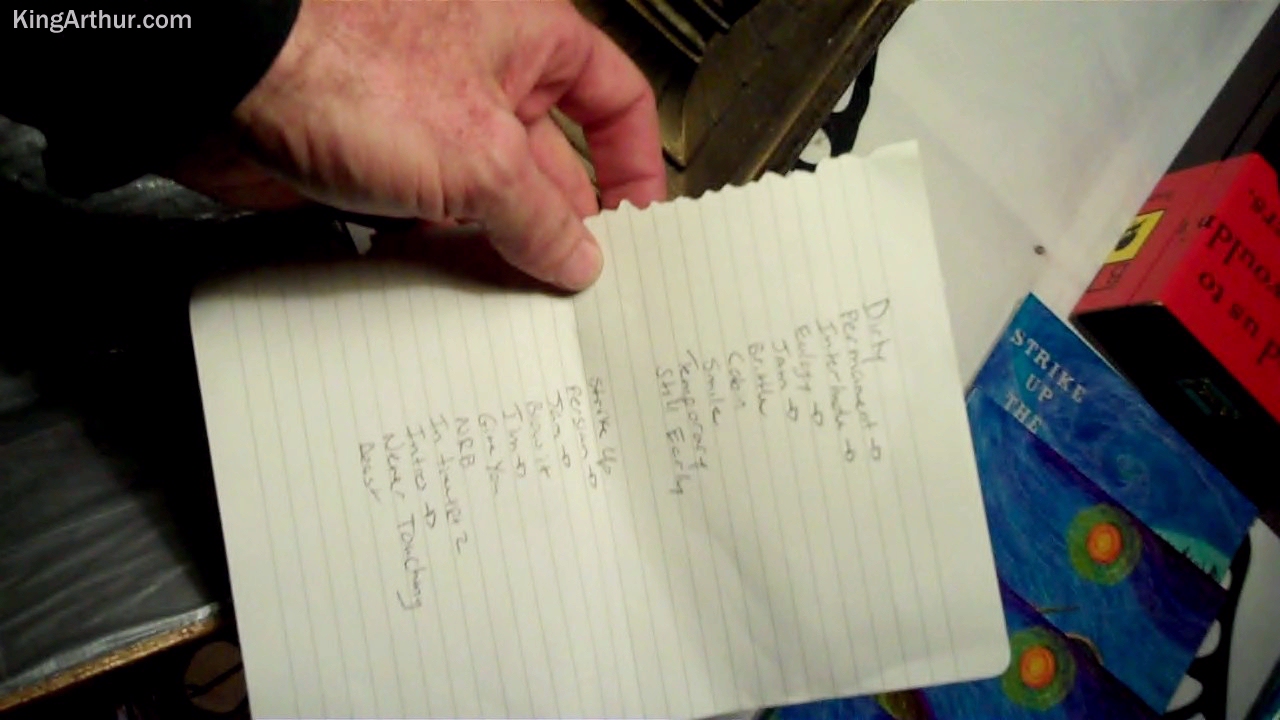 KingArthur.com
Dirty
Permanent →
Interlude →
Eulogy →
Jam →
Brittle
Cabin
Smile
Temporary
Still Early
Strike Up
Persian →
Jam →
Bow it
Jam →
Give You
NRB
Intro →
Never Touching
STRIKE
UP
THE
d us to
would
ers.